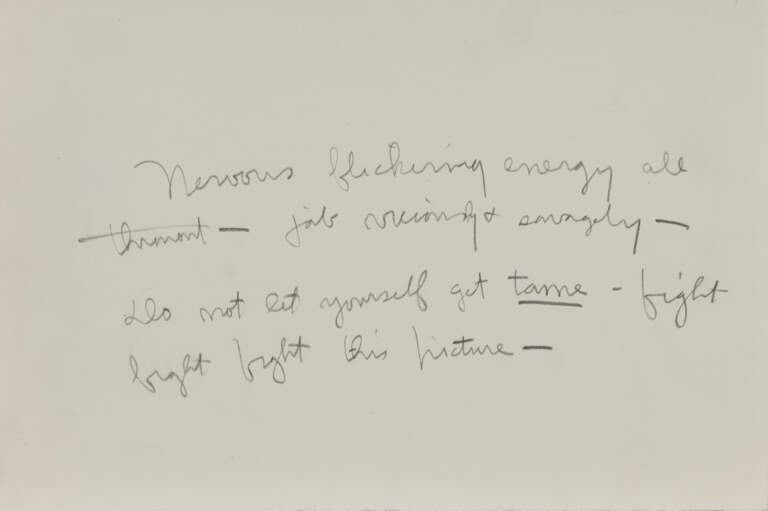 Nervous flickering energy all
thruout — jab viciously & savagely —
Do not let yourself get tame - fight
fight fight this picture —